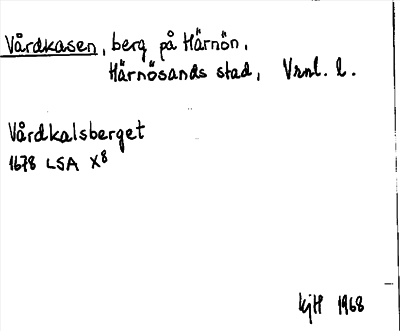 Vårdkasen, berg på Härnön,
Härnösands stad, Vrnl. l.
Vårdkalsberget
1678 LSA X8
KjH 1968